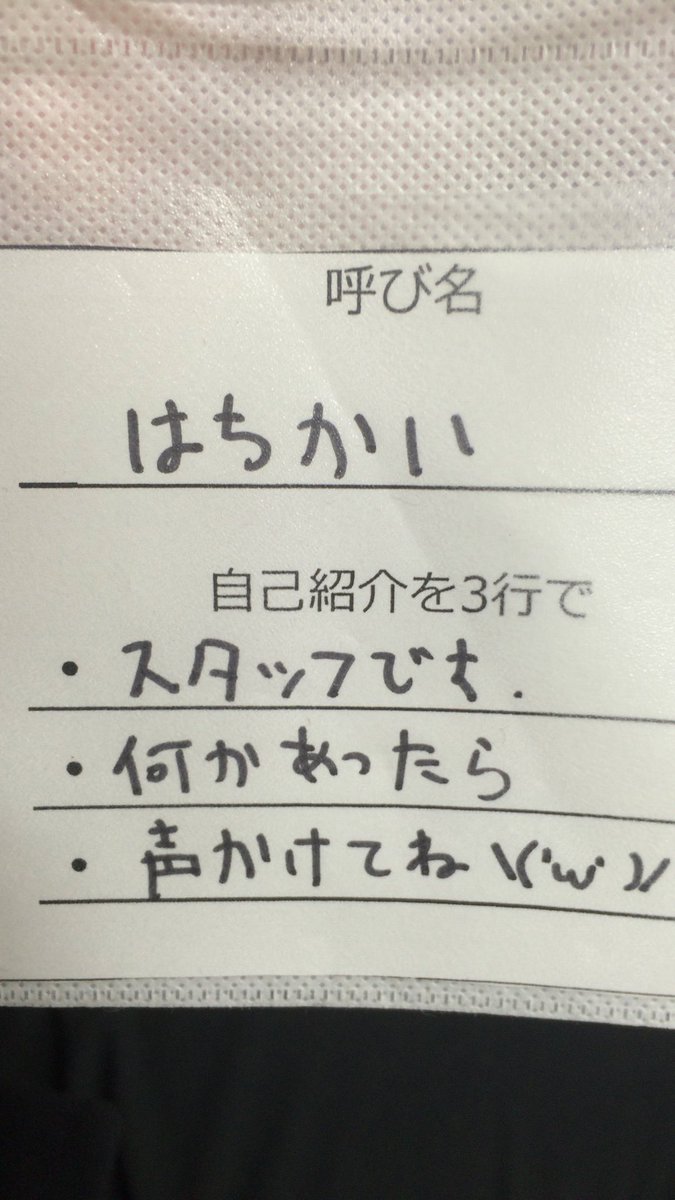 呼び名
はちかい
自己紹介を3行で
・スタッフです.
・何かあったら
・声かけてね\('ω')/